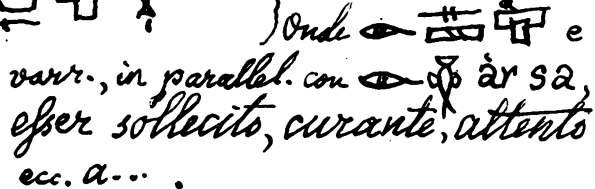 ) Onde 𓁹 e
varr., in parallel. con 𓁹 àr sa,
eſser sollecito, curante, attento
ecc. a... .